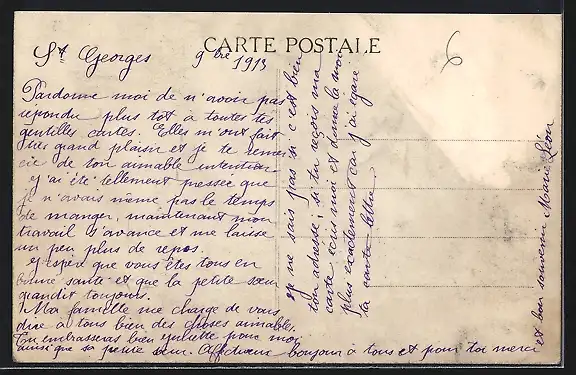 CARTE POSTALE
6
St Georges 9bre 1913
Pardonne moi de n'avoir pas
répondu plus tôt à toutes tes
gentilles cartes. Elles m'ont fait
très grand plaisir et je te remer
cie de ton aimable intention
j'ai été tellement pressée que
je n'avais même pas le temps
de manger, maintenant mon
travail s'avance et me laisse
un peu plus de repos.
J'espère que vous êtes tous en
bonne santé et que la petite sœur
grandit toujours.
Ma famille me charge de vous
dire à tous bien des choses aimables.
Tu embrasseras bien pour moi
ainsi que sa petite sœur. Affectueux bonjour à tous et pour toi merci
et bon souvenir Marie Léon
je ne sais pas si c'est bien
ton adresse; si tu reçois ma
carte écris moi et donne la moi
plus exactement car j'ai égaré
ta carte lettre